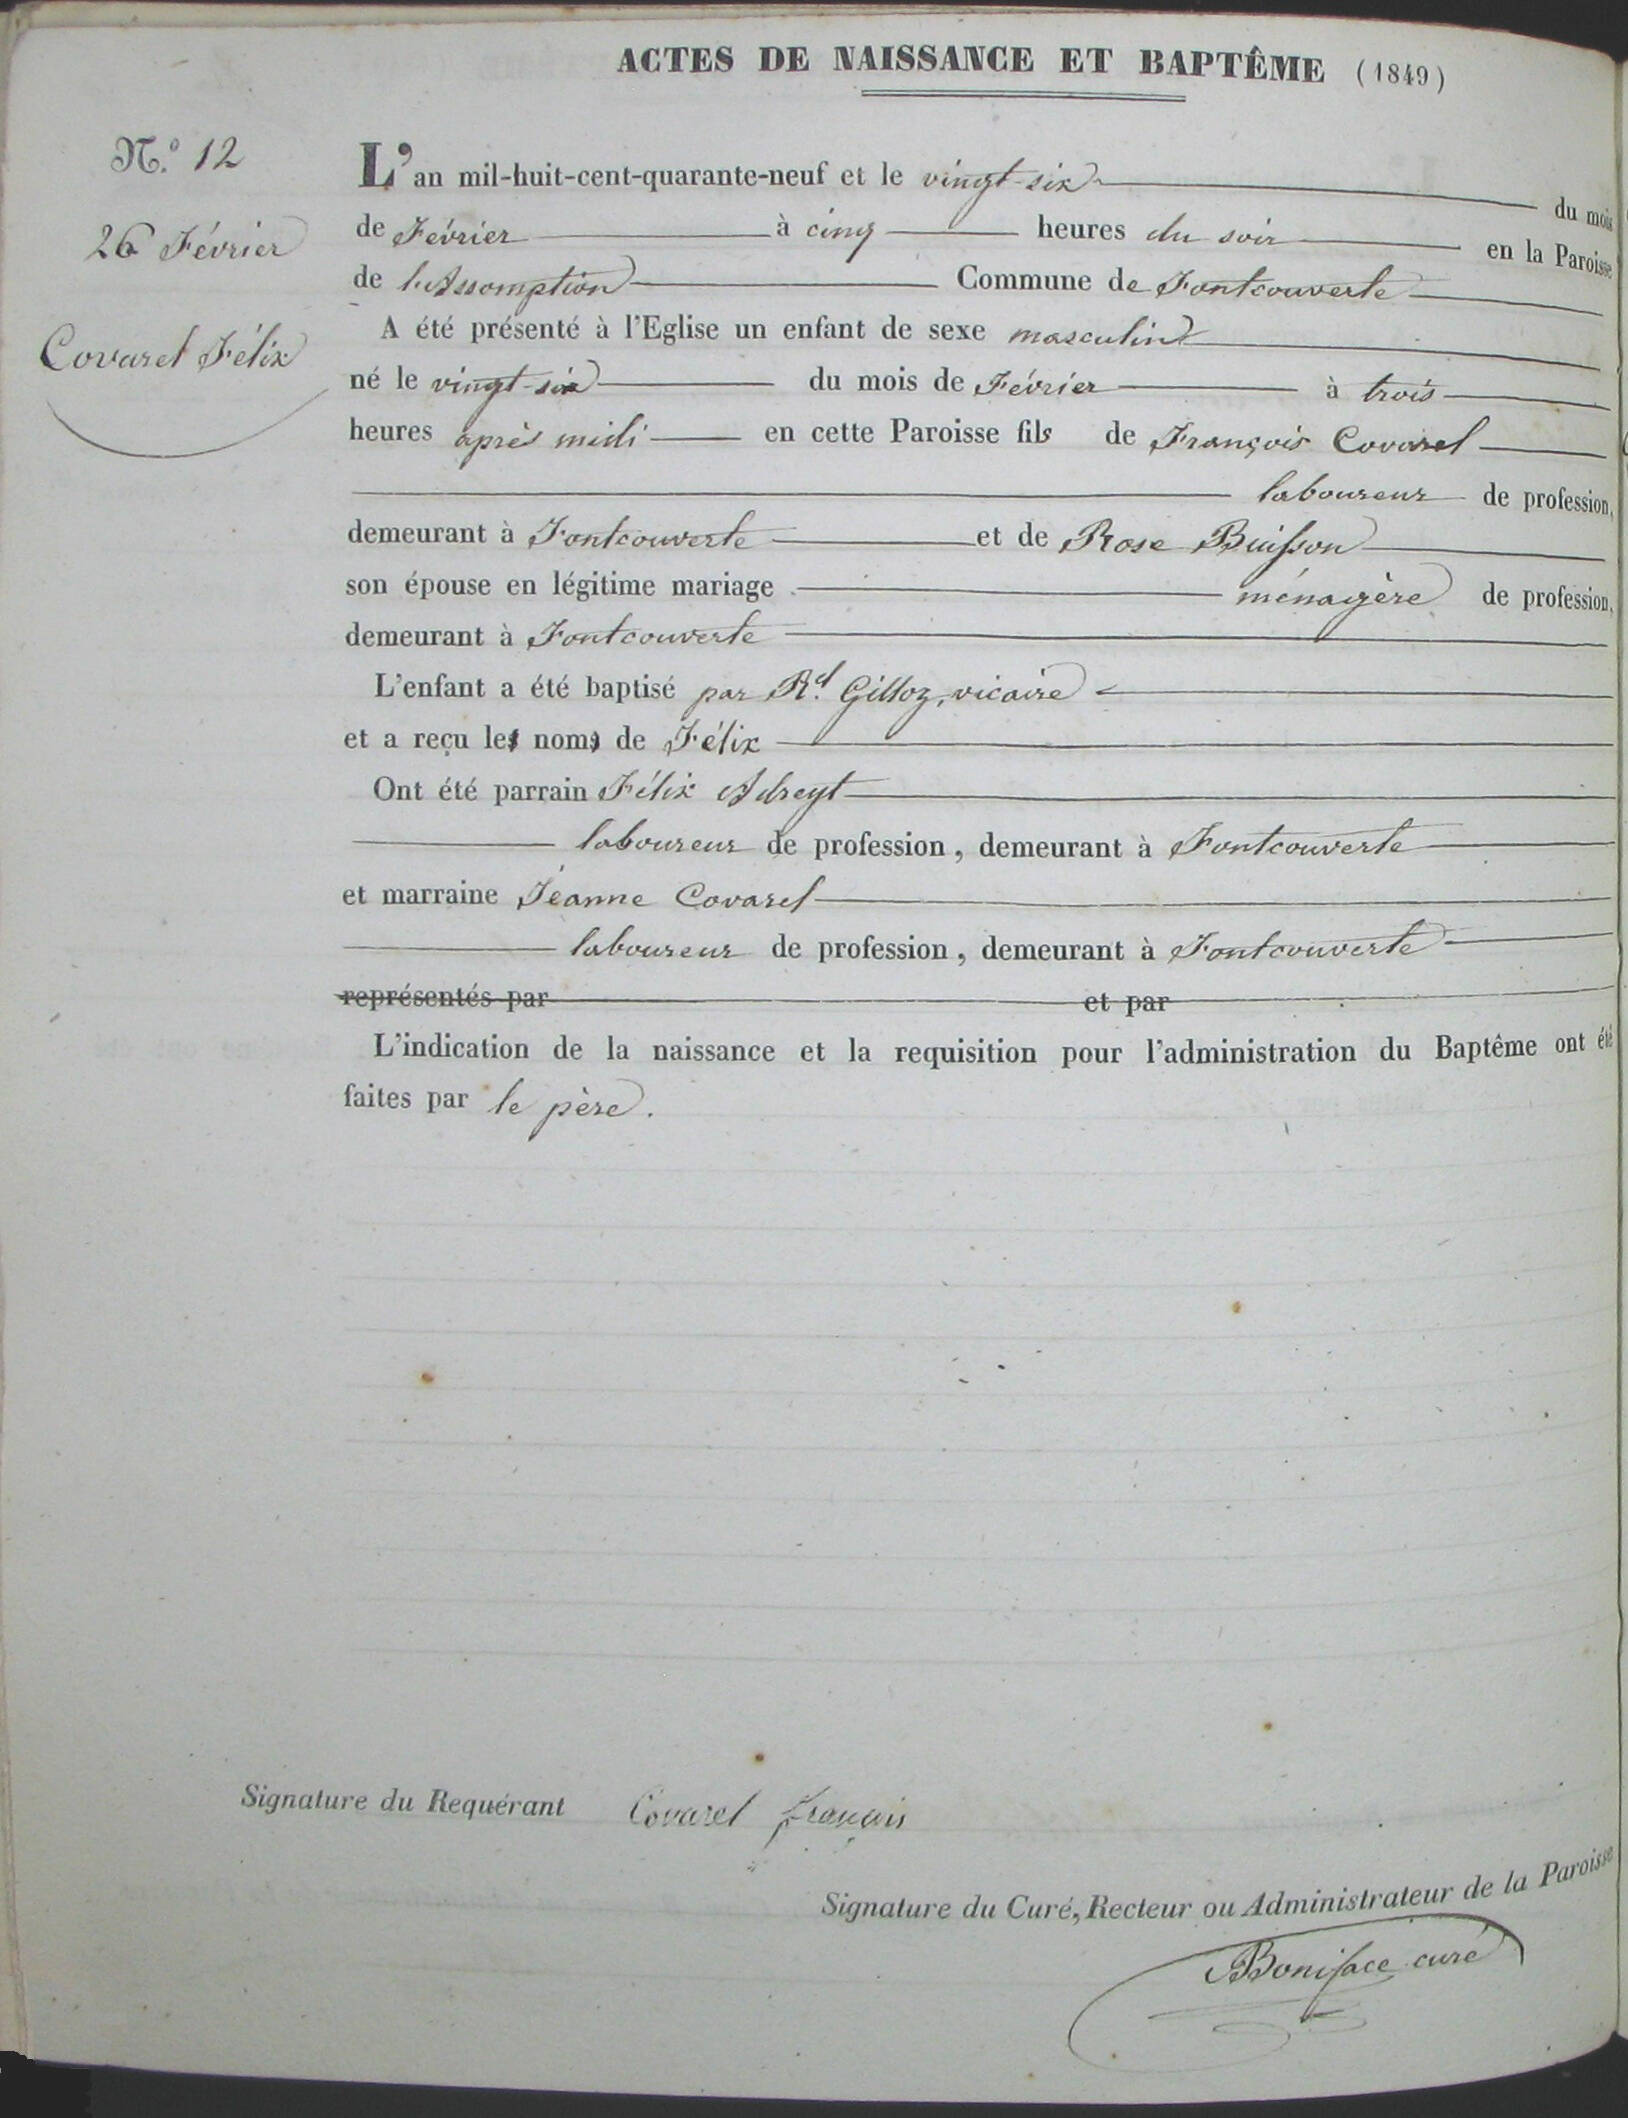 ACTES DE NAISSANCE ET BAPTÊME (1849)
N.º 12
26 Février
Covarel Félix
L'an mil-huit-cent-quarante-neuf et le vingt-six du mois
de Février à cinq heures du soir en la Paroisse
de l'Assomption Commune de Fontcouverte
A été présenté à l'Eglise un enfant de sexe masculin
né le vingt-six du mois de Février à trois
heures après midi en cette Paroisse fils de François Covarel
laboureur de profession,
demeurant à Fontcouverte et de Rose Buisson
son épouse en légitime mariage ménagère de profession,
demeurant à Fontcouverte
L'enfant a été baptisé par Rd. Gilloz, vicaire
et a reçu les noms de Félix
Ont été parrain Félix Adreyt
laboureur de profession, demeurant à Fontcouverte
et marraine Jeanne Covarel
laboureur de profession, demeurant à Fontcouverte
représentés par et par
L'indication de la naissance et la requisition pour l'administration du Baptême ont été
faites par le père.
Signature du Requérant Covarel françois
Signature du Curé, Recteur ou Administrateur de la Paroisse
Boniface curé